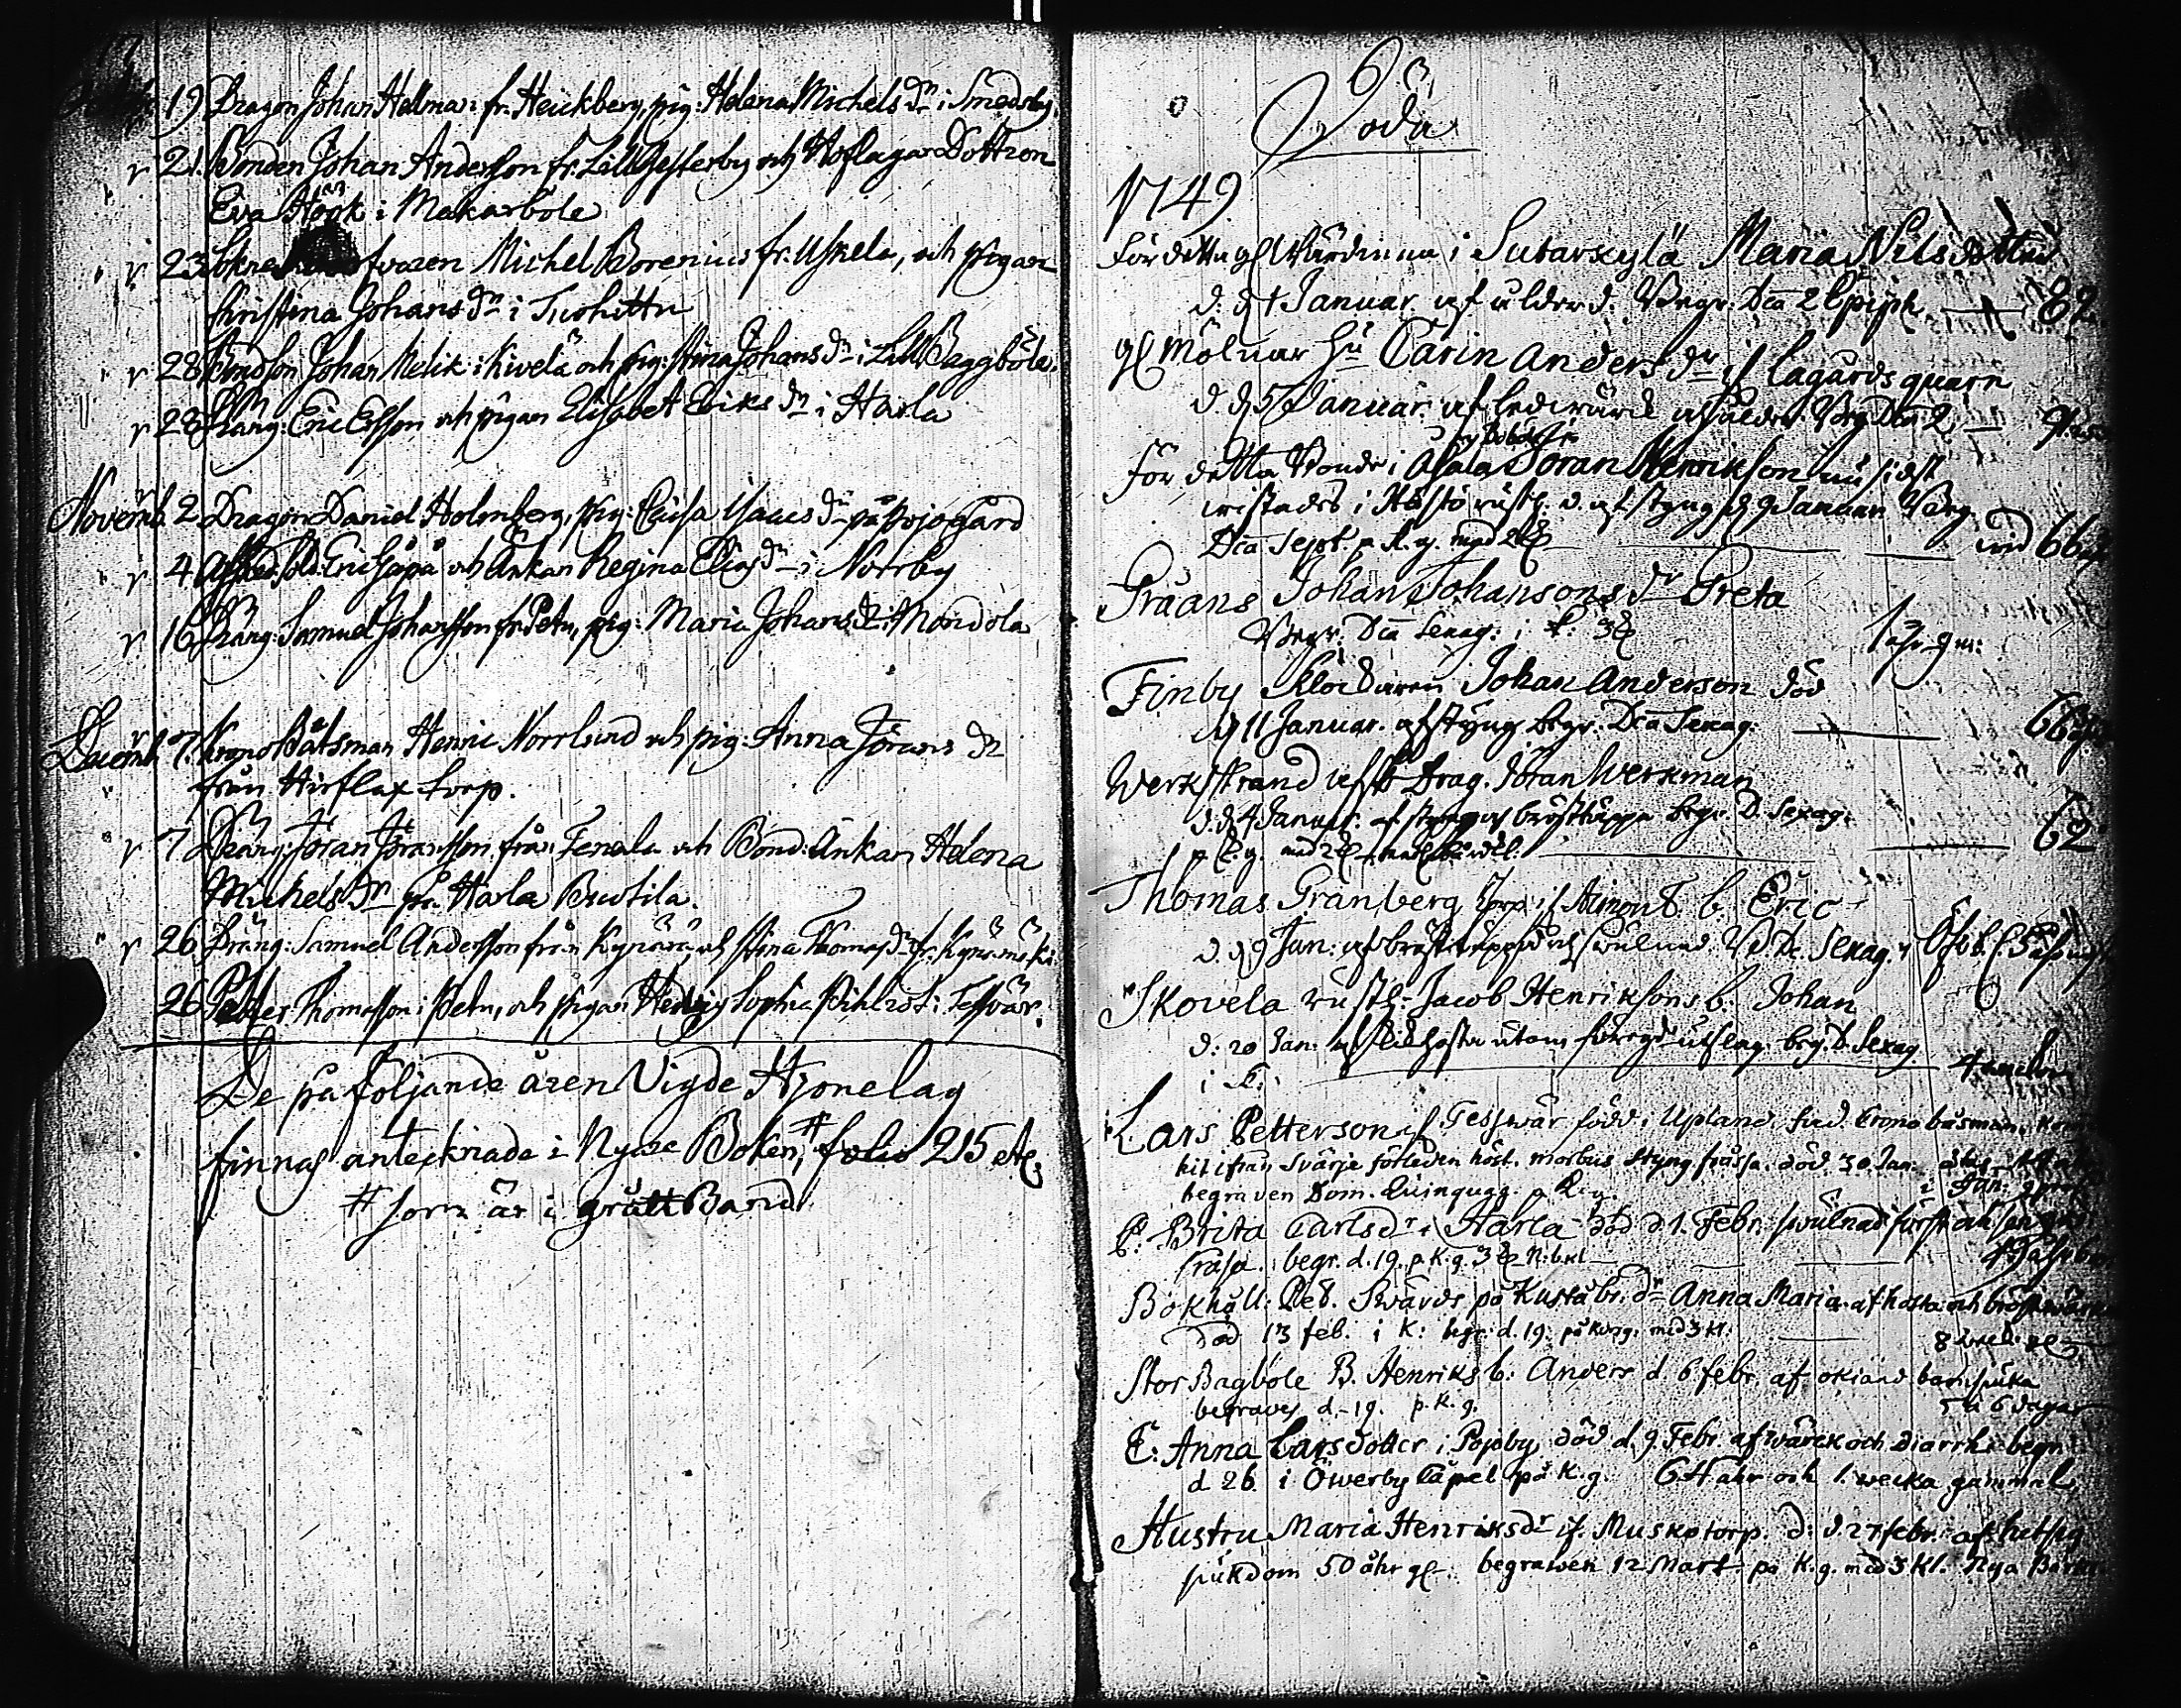 19 Dragon Johan Hellman fr. Heickberg, pig: Helena Michels dr i Smedsby.
21. Bonden Johan Andersson fr. Lill Gesterby och Hoflagar Dottron
Eva Höök i Makarböle
23 Michel Borenius fr. Uskela, och Pigan
Christina Johans dr i Tuohittu
28 Bondson Johan Melik i Kivelä och pig: Stina Johans dr i Lill Baggböle.
28 Dräng: Eric Ersson och pigan Elisabet Eriks dr i Harla
Novemb. 2 Dragon Daniel Holmberg, pig: Caisa Isaacs dr på Pojogård
4 Afsked. sold. Eric Håpa och Änkan Regina Elias dr i Norrby
16 Dräng: Samuel Johansson fr. Petu, pig: Maria Johans dr i Mondola
Decemb. 7. Krono Båtsman Henric Norrlund och pig: Anna Jörans dr
från Hirflax torp.
7 Dräng: Jöran Jöransson från Tenala och Bond: Änkan Helena
Michels dr på Harla Brutila.
26 Dräng: Samuel Andersson från och Stina Thomas dr fr.
26 Petter Thomasson i Petu, och pigan Hedvig Sophia i Tessvär.
De på följande åren Vigde Hjonelag
finnas antecknade i Nyare Boken, # folio 215 etc.
# som är i grått Band.
6
Döda
1749
För detta gl Wärdinna i Sutarkylä Maria Nils dotter
d. d. 1 Januar. af ålderd. Begr. Dca 2 Epiph. 82.
gl Mölnar Hu Carin Anders dr if Lagårds quarn
d. d. 5 Januar. af ledwärck och ålder. Beg Dca 2
För detta Bonde i Jöran Henrikson nu sidst
wistades i rusth. d. af styng d. 9 Januar. Beg.
Dca Sept. p. K. g. med 2 kl wid 66
Gråans Johan Johansons dr Greta
Begr. Dca Sexag: i K: 3 kl 1 åhr gm:
Finby Klockaren Johan Anderson död
d. 11 Januar. af styng begr. Dca Sexag: 66
Werkstrand Drag. Jöran Werkman
d. d. 4 Januar. af styng och brösttäppa begr. D. Sexag:
p K. g. med 2 kl 62
Thomas Granberg torp. if Aimont. b. Eric
d. d. 9 Jan: af brösttäppa och swulnad. Sexag.
Skovela rusth. Jacob Henriksons b. Johan
d: 20 Jan. af kikhosta utom utslag. beg. D. Sexag.
i K.
Lars Petterson if Tessvär född i Upland. Cronobåsman, kom
hit ifrån Svärje förleden höst. morbus styng frässa. död 30 Jan.
begraven Dom. Quinquag. p K. g.
P: Brita Carls dr i Harla död d. 1. Febr. swulnad först och sen
fråsa. begr. d. 19. p. K. g. 3 kl
Bokhåll: Ped. Swärds på Kusta br. dr Anna Maria af hosta och bröstwärk
död 13 feb. i K: begr: d. 19. på K. g. med 3 kl. 8 weck. gl
Stor Bagböle B. Henriks b: Anders d. 6 febr. af okiänd barnsiuka
begraves d. 19. p. K. g. 6 dagar
E: Anna Larsdotter i Pojoby död d. 9. Febr. af wärck och diarrhé begr.
d 26. i Öwerby Capel på K. g. 64 åhr och 1. wecka gammal.
Hustru Maria Henriks dr if. Muskotorp. d: d. 27 febr. af hetsig
siukdom 50 åhr gl. begrawen 12 Mart. på K. g. med 3 kl. Nya